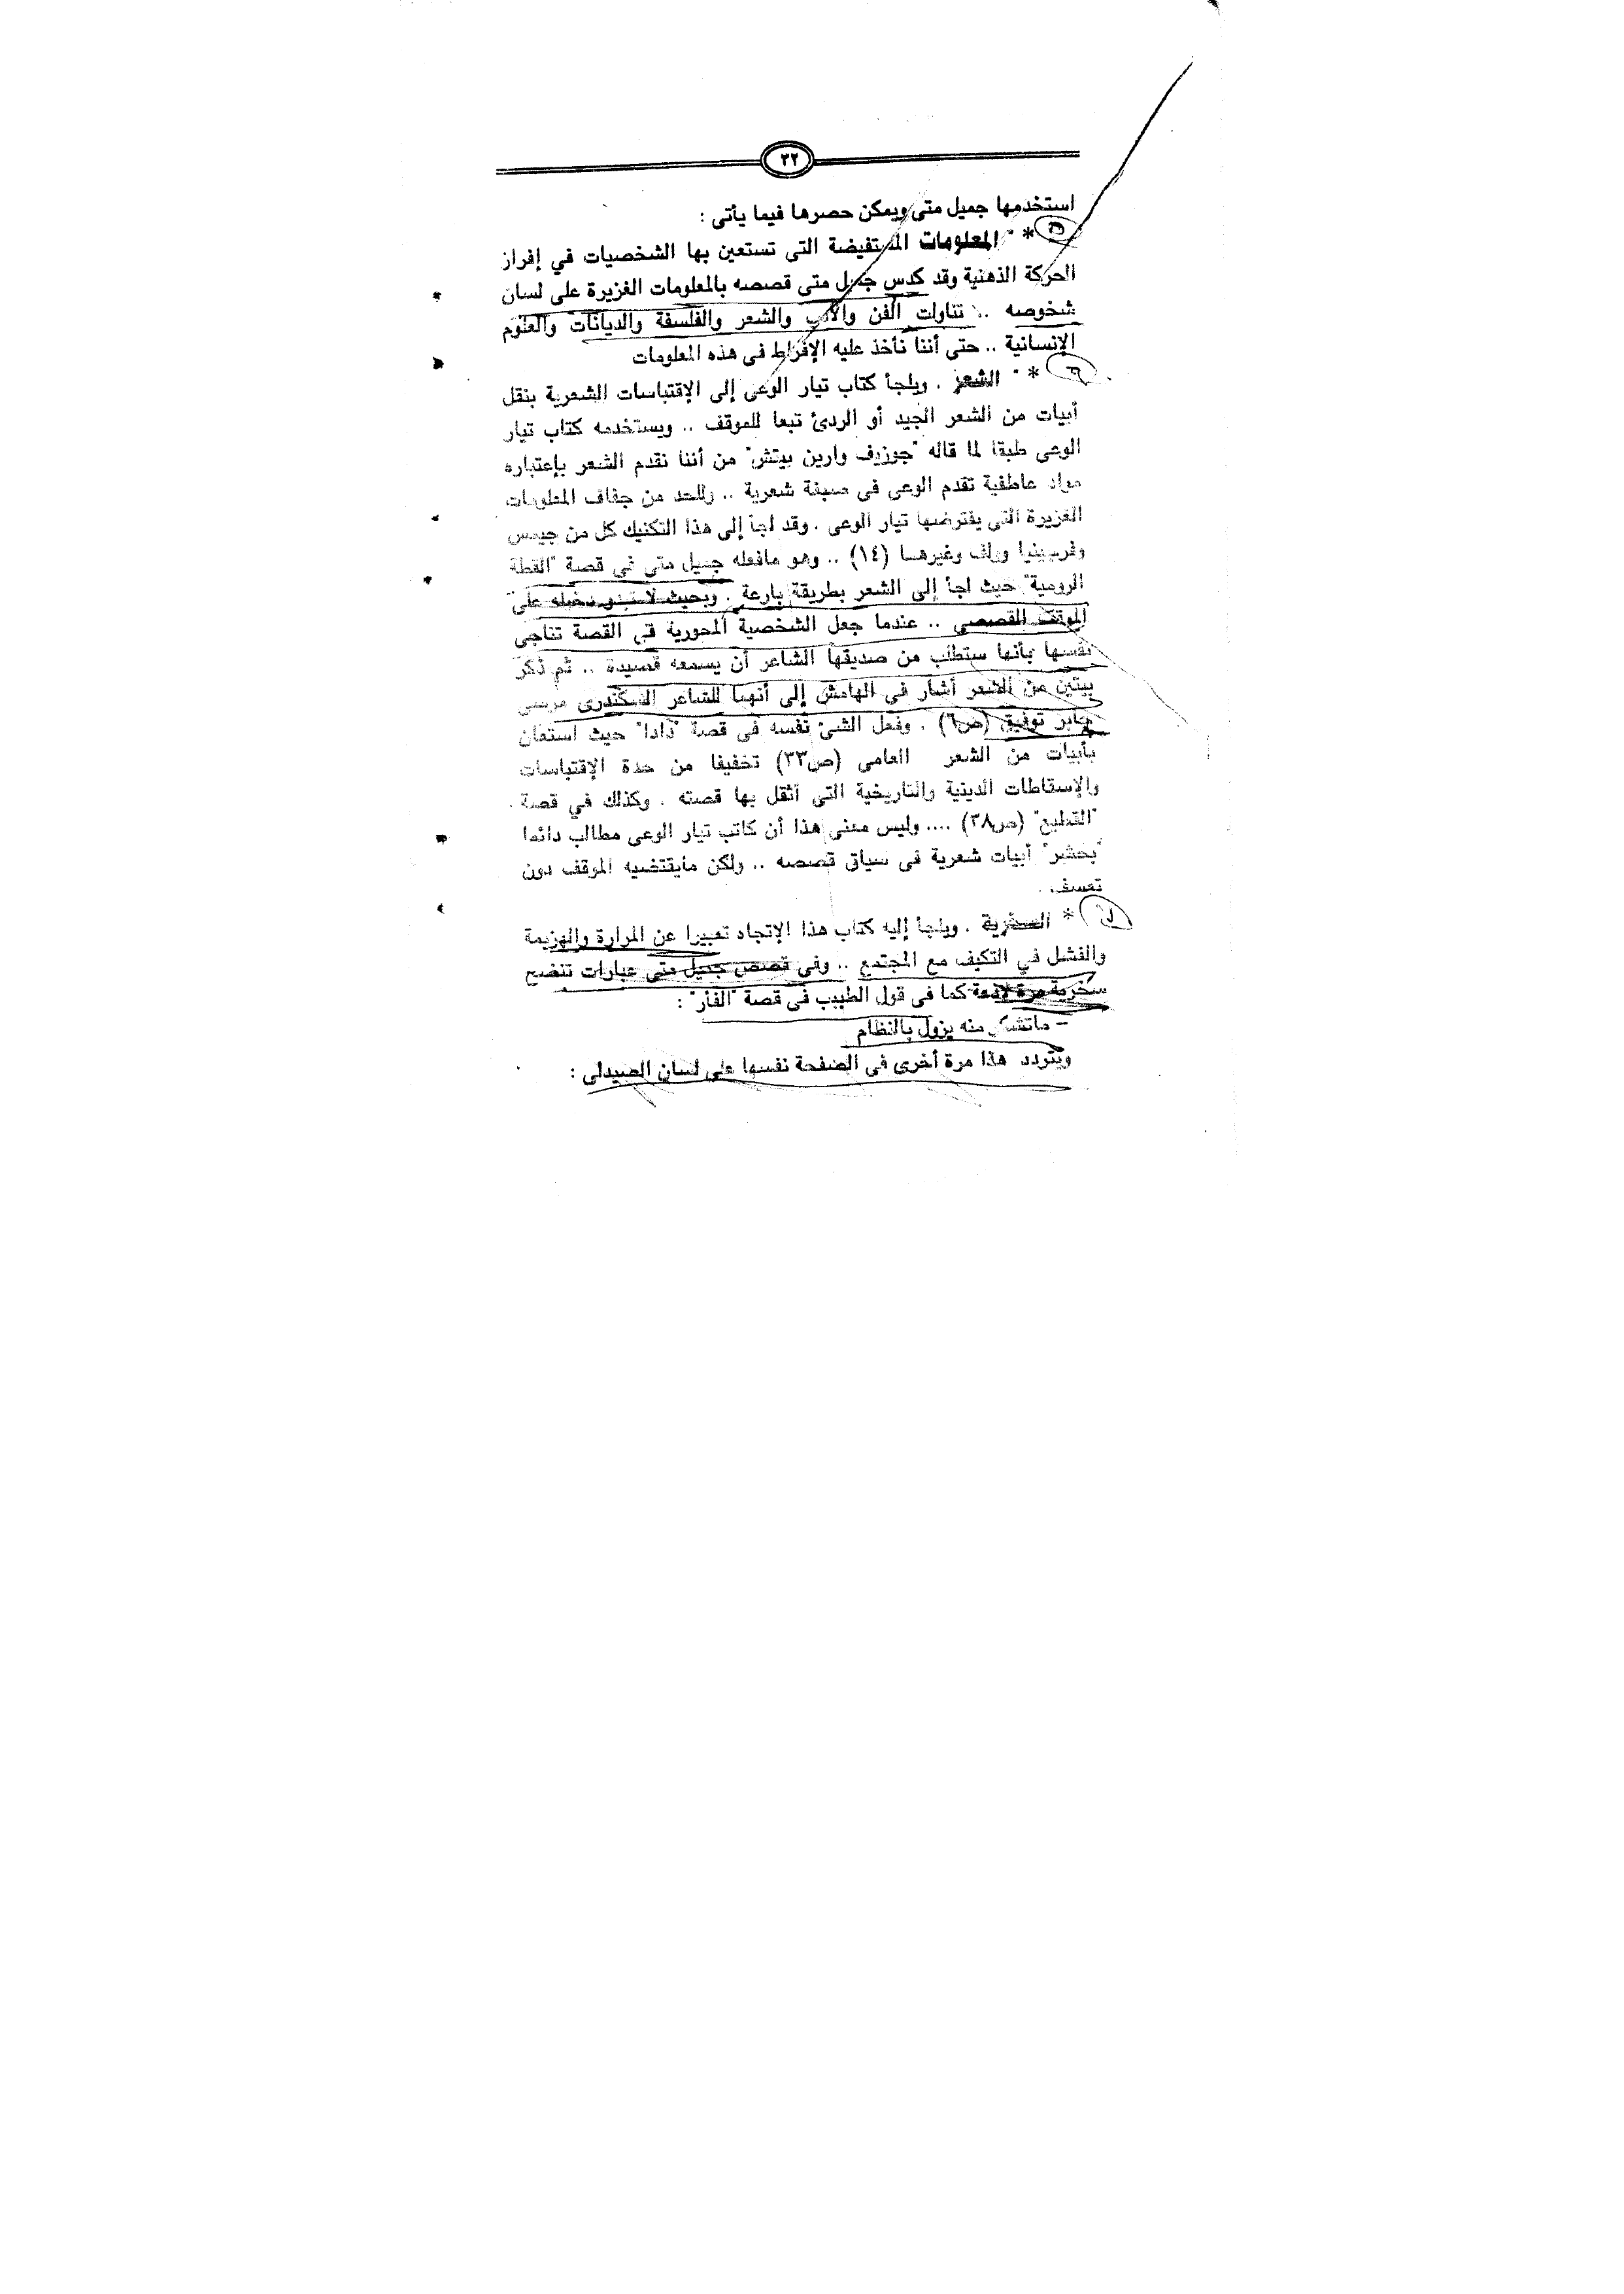 ٣٢
استخدمها جميل متى ويمكن حصرها فيما يأتى :
* " المعلومات المستفيضة التى تستعين بها الشخصيات في إفراز
الحركة الذهنية وقد كدس جميل متى قصصه بالمعلومات الغزيرة على لسان
شخوصه .. تناولت الفن والأدب والشعر والفلسفة والديانات والعلوم
الإنسانية .. حتى أننا نأخذ عليه الإفراط فى هذه المعلومات
* " الشعر . ويلجأ كتاب تيار الوعى إلى الإقتباسات الشعرية بنقل
أبيات من الشعر الجيد أو الردئ تبعا للموقف .. ويستخدمه كتاب تيار
الوعى طبقا لما قاله "جوزيف وارين بيتش" من أننا نقدم الشعر بإعتباره
مواد عاطفية تقدم الوعى فى صيغة شعرية .. وللحد من جفاف المعلومات
الغزيرة التي يفترضها تيار الوعى . وقد لجأ إلى هذا التكنيك كل من جيمس
وفرجينيا وولف وغيرهما (١٤) .. وهو مافعله جميل متى فى قصة "القطة
الرومية" حيث لجأ إلى الشعر بطريقة بارعة . وبحيث لا تبدو دخيله على
الموقف القصصي .. عندما جعل الشخصية المحورية فى القصة تناجى
نفسها بأنها ستطلب من صديقها الشاعر أن يسمعه قصيدة .. ثم ذكر
بيتين من الشعر أشار في الهامش إلى أنهما للشاعر السكندرى مرسى
جابر توفيق (ص٦) . وفعل الشئ نفسه فى قصة "دادا" حيث استعان
بأبيات من الشعر العامى (ص٢٣) تخفيفا من حدة الإقتباسات
والإسقاطات الدينية والتاريخية التى أثقل بها قصته . وكذلك في قصة
"القطيع" (ص٣٨) .... وليس معنى هذا أن كاتب تيار الوعى مطالب دائما
"بحشر" أبيات شعرية فى سياق قصصه .. ولكن مايقتضيه الموقف دون
تعسف .
* السخرية . ويلجأ إليه كتاب هذا الإتجاه تعبيرا عن المرارة والهزيمة
والفشل في التكيف مع المجتمع .. وفى قصص جميل متى عبارات تنضح
سخرية مرة لاذعة كما فى قول الطبيب فى قصة "الفأر" :
- ماتشكو منه يزول بالنظام
ويتردد هذا مرة أخرى فى الصفحة نفسها على لسان الصيدلى :